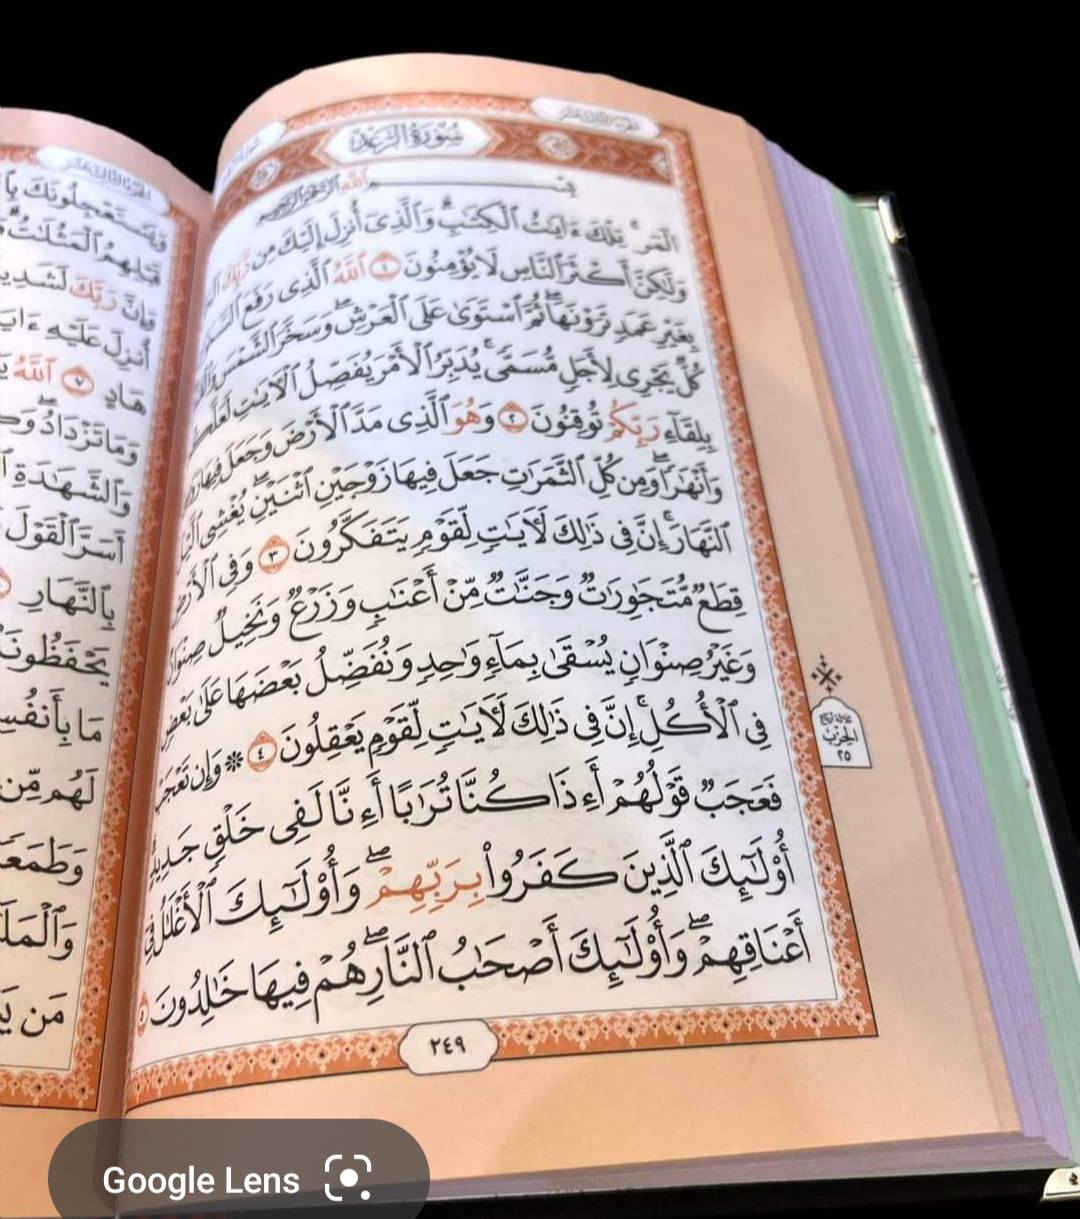 سُورَةُ الرَّعْدِ
الجزء الثالث عشر
بِسْمِ ٱللَّهِ ٱلرَّحْمَٰنِ ٱلرَّحِيمِ
الٓمٓر ۚ تِلْكَ ءَايَٰتُ ٱلْكِتَٰبِ ۗ وَٱلَّذِىٓ أُنزِلَ إِلَيْكَ مِن رَّبِّكَ
وَلَٰكِنَّ أَكْثَرَ ٱلنَّاسِ لَا يُؤْمِنُونَ ١ ٱللَّهُ ٱلَّذِى رَفَعَ
بِغَيْرِ عَمَدٍ تَرَوْنَهَا ۖ ثُمَّ ٱسْتَوَىٰ عَلَى ٱلْعَرْشِ ۖ وَسَخَّرَ ٱلشَّمْسَ
كُلٌّ يَجْرِى لِأَجَلٍ مُّسَمًّى ۚ يُدَبِّرُ ٱلْأَمْرَ يُفَصِّلُ ٱلْءَايَٰتِ
بِلِقَآءِ رَبِّكُمْ تُوقِنُونَ ٢ وَهُوَ ٱلَّذِى مَدَّ ٱلْأَرْضَ وَجَعَلَ فِيهَا
وَأَنْهَٰرًا ۖ وَمِن كُلِّ ٱلثَّمَرَٰتِ جَعَلَ فِيهَا زَوْجَيْنِ ٱثْنَيْنِ ۖ يُغْشِى
ٱلنَّهَارَ ۚ إِنَّ فِى ذَٰلِكَ لَءَايَٰتٍ لِّقَوْمٍ يَتَفَكَّرُونَ ٣ وَفِى ٱلْأَرْضِ
قِطَعٌ مُّتَجَٰوِرَٰتٌ وَجَنَّٰتٌ مِّنْ أَعْنَٰبٍ وَزَرْعٌ وَنَخِيلٌ صِنْوَانٌ
وَغَيْرُ صِنْوَانٍ يُسْقَىٰ بِمَآءٍ وَٰحِدٍ وَنُفَضِّلُ بَعْضَهَا عَلَىٰ بَعْضٍ
فِى ٱلْأُكُلِ ۚ إِنَّ فِى ذَٰلِكَ لَءَايَٰتٍ لِّقَوْمٍ يَعْقِلُونَ ٤ ۞ وَإِن تَعْجَبْ
فَعَجَبٌ قَوْلُهُمْ أَءِذَا كُنَّا تُرَٰبًا أَءِنَّا لَفِى خَلْقٍ جَدِيدٍ
أُو۟لَٰٓئِكَ ٱلَّذِينَ كَفَرُوا۟ بِرَبِّهِمْ ۖ وَأُو۟لَٰٓئِكَ ٱلْأَغْلَٰلُ فِىٓ
أَعْنَاقِهِمْ ۖ وَأُو۟لَٰٓئِكَ أَصْحَٰبُ ٱلنَّارِ ۖ هُمْ فِيهَا خَٰلِدُونَ ٥
٢٤٩
الحزب
٢٥
وَيَسْتَعْجِلُونَكَ
قَبْلِهِمُ ٱلْمَثُلَٰتُ
وَإِنَّ رَبَّكَ لَشَدِيدُ
أُنزِلَ عَلَيْهِ
هَادٍ ٧ ٱللَّهُ
وَمَا تَزْدَادُ ۖ
وَٱلشَّهَٰدَةِ
أَسَرَّ ٱلْقَوْلَ
بِٱلنَّهَارِ
يَحْفَظُونَهُ
مَا بِأَنفُسِ
لَهُم مِّن
وَطَمَعًا
مَن
Google Lens